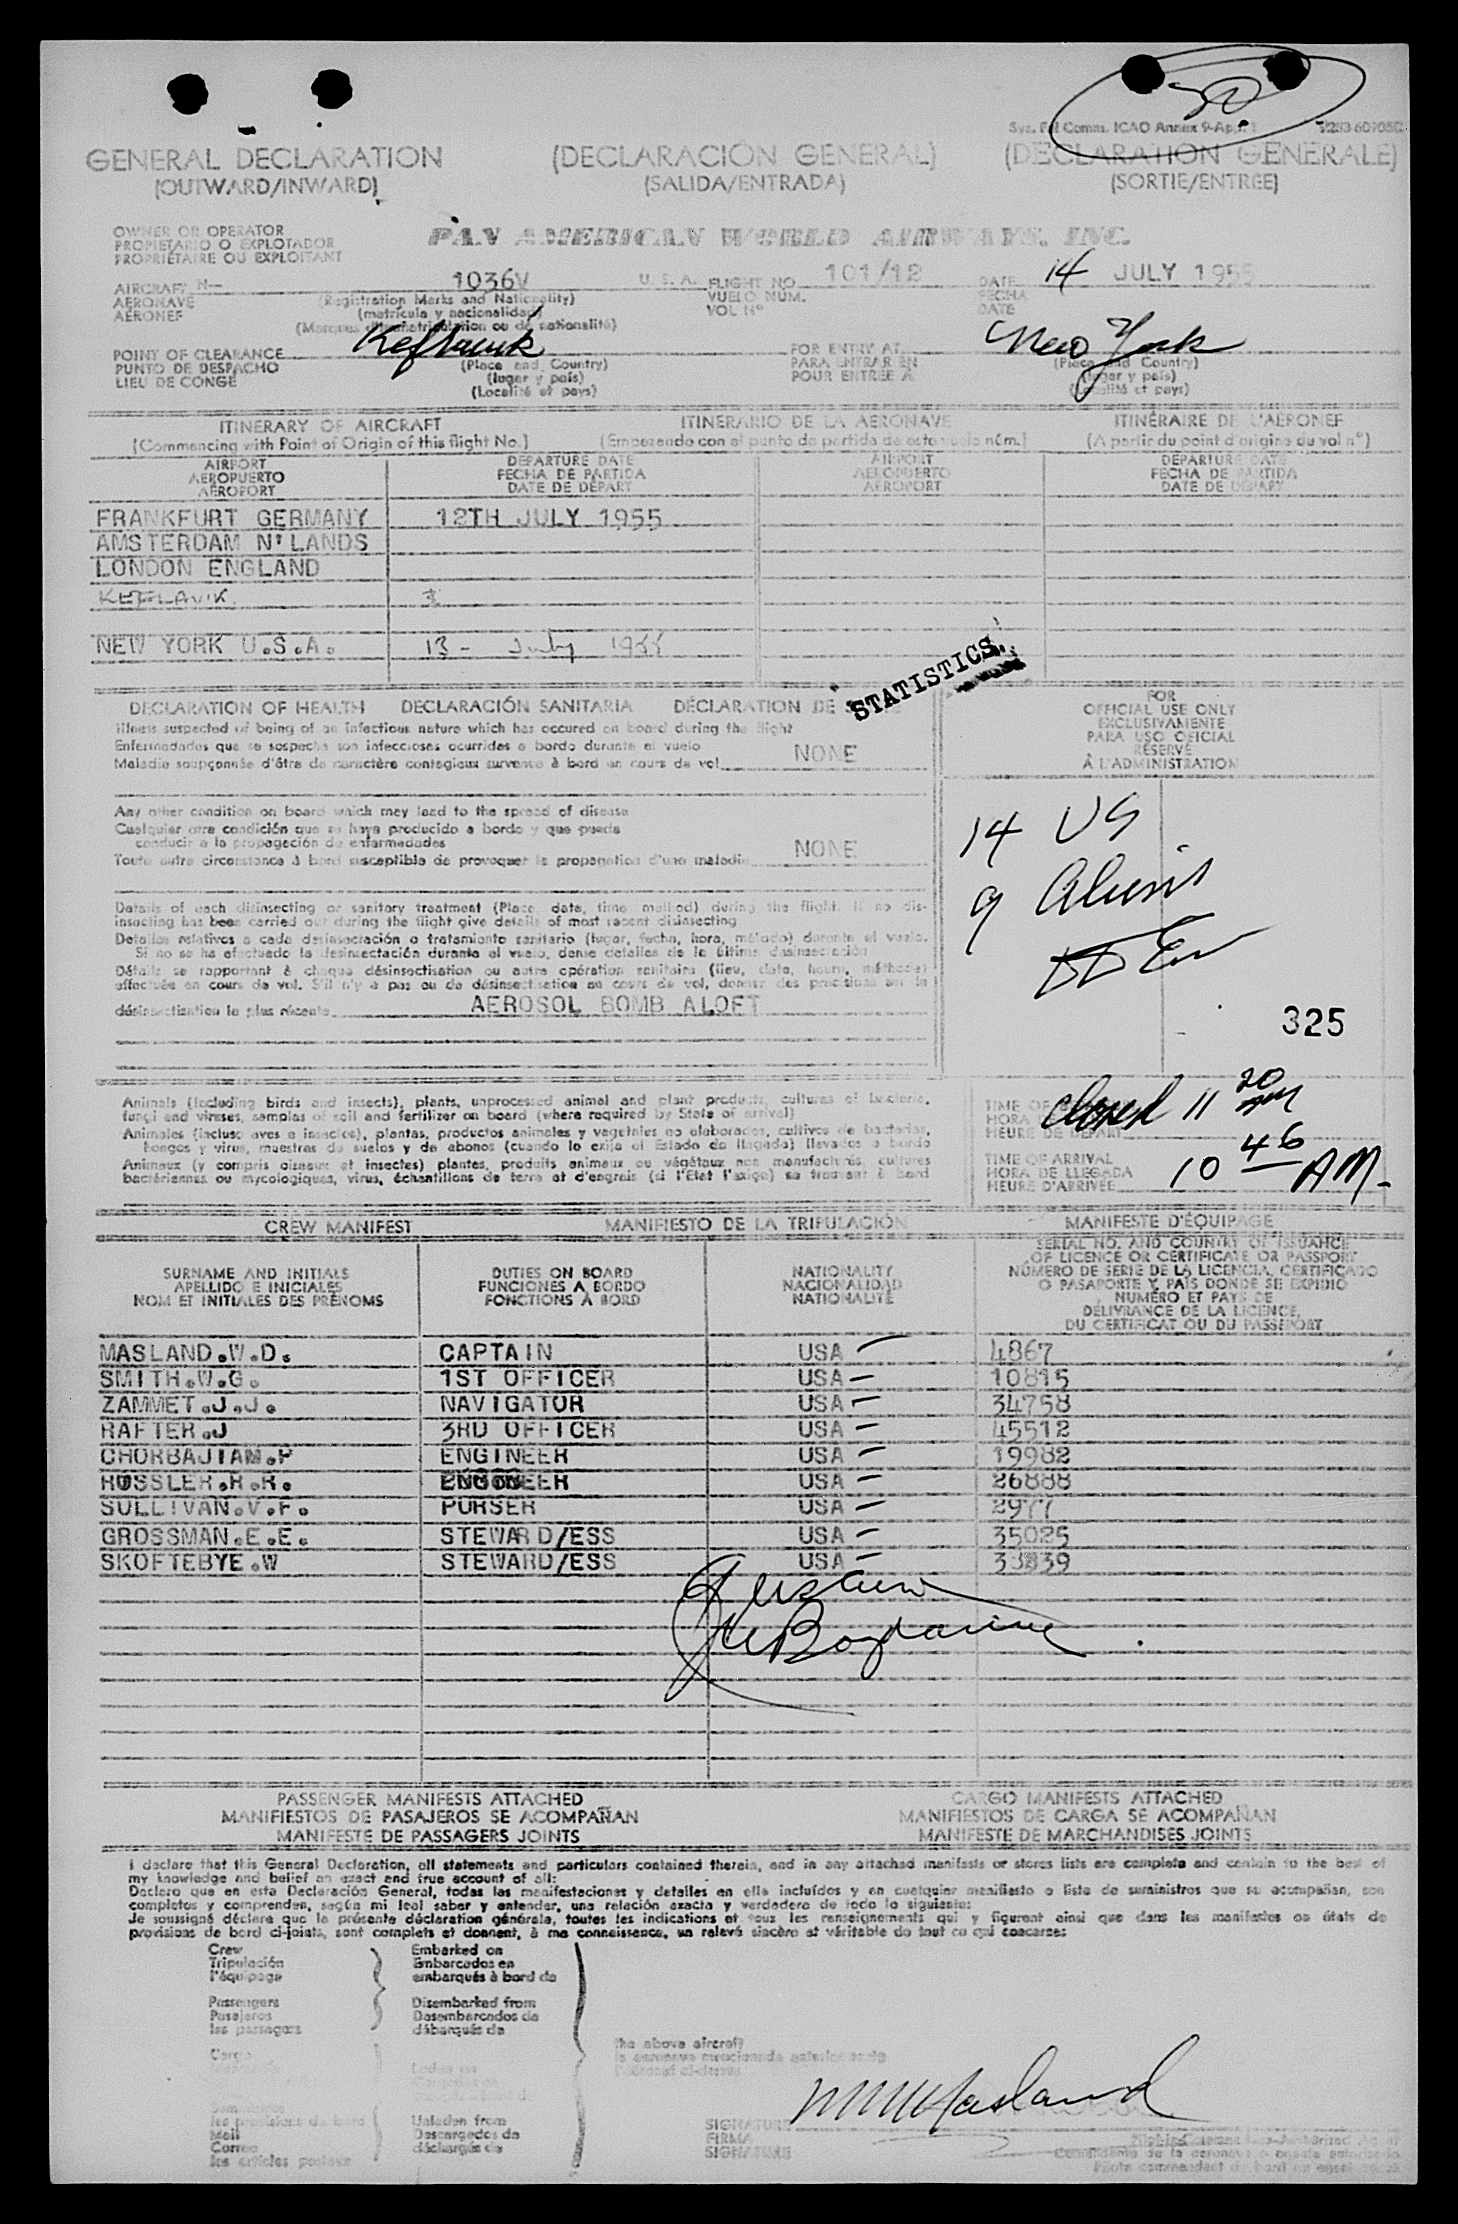 Sys. Fel Comm. ICAO Annex 9-App. 1
GENERAL DECLARATION (DECLARACIÓN GENERAL) (DECLARATION GENERALE)
(OUTWARD/INWARD) (SALIDA/ENTRADA) (SORTIE/ENTREE)
OWNER OR OPERATOR
PROPIETARIO O EXPLOTADOR
PROPRIÉTAIRE OU EXPLOITANT
PAN AMERICAN WORLD AIRWAYS, INC.
AIRCRAFT N— 1036V U. S. A. FLIGHT NO. 101/12 DATE 14 JULY 1955
AERONAVE (Registration Marks and Nationality) VUELO NÚM. FECHA
AÉRONEF (matrícula y nacionalidad) VOL Nº DATE
(Marques d'immatriculation ou de nationalité)
POINT OF CLEARANCE Keflavik FOR ENTRY AT New York
PUNTO DE DESPACHO (Place and Country) PARA ENTRAR EN (Place and Country)
LIEU DE CONGÉ (lugar y país) POUR ENTREE A (lugar y país)
(Localité et pays) (Localité et pays)
ITINERARY OF AIRCRAFT ITINERARIO DE LA AERONAVE ITINÉRAIRE DE L'AERONEF
(Commencing with Point of Origin of this flight No.) (Empezando con el punto de partida de este vuelo núm.) (A partir du point d'origine du vol nº)
AIRPORT DEPARTURE DATE AIRPORT DEPARTURE DATE
AEROPUERTO FECHA DE PARTIDA AEROPUERTO FECHA DE PARTIDA
AÉROPORT DATE DE DÉPART AÉROPORT DATE DE DÉPART
FRANKFURT GERMANY 12TH JULY 1955
AMSTERDAM N'LANDS
LONDON ENGLAND
KEFLAVIK
NEW YORK U.S.A. 13 - July 1955
STATISTICS.
DECLARATION OF HEALTH DECLARACIÓN SANITARIA DÉCLARATION DE
Illness suspected of being of an infectious nature which has occured on board during the flight
Enfermedades que se sospecha son infecciosas ocurridas a bordo durante el vuelo
Maladie soupçonnée d'être de caractère contagieux survenue à bord en cours de vol NONE
FOR
OFFICIAL USE ONLY
EXCLUSIVAMENTE
PARA USO OFICIAL
RÉSERVÉ
À L'ADMINISTRATION
Any other condition on board which may lead to the spread of disease
Cualquier otra condición que se haya producido a bordo y que pueda
conducir a la propagación de enfermedades
Toute autre circonstance à bord susceptible de provoquer la propagation d'une maladie NONE
14 US
9 Aliens
Details of each disinsecting or sanitary treatment (Place, date, time, method) during the flight. If no dis-
insecting has been carried out during the flight give details of most recent disinsecting
Detalles relativos a cada desinsectación o tratamiento sanitario (lugar, fecha, hora, método) durante el vuelo.
Si no se ha efectuado la desinsectación durante el vuelo, dense detalles de la última desinsectación
Détails se rapportant à chaque désinsectisation ou autre opération sanitaire (lieu, date, heure, méthode)
effectuée en cours de vol. S'il n'y a pas eu de désinsectisation au cours de vol, donner des précisions sur la
désinsectisation la plus récente AEROSOL BOMB ALOFT
325
Animals (including birds and insects), plants, unprocessed animal and plant products, cultures of bacteria,
fungi and viruses, samples of soil and fertilizer on board (where required by State of arrival)
Animales (incluso aves e insectos), plantas, productos animales y vegetales no elaborados, cultivos de bacterias,
hongos y virus, muestras de suelos y de abonos (cuando lo exija el Estado de llegada) llevados a bordo
Animaux (y compris oiseaux et insectes) plantes, produits animaux ou végétaux non manufacturés, cultures
bactériennes ou mycologiques, virus, échantillons de terre et d'engrais (si l'Etat l'exige) se trouvant à bord
TIME OF closed 11 20 am
HORA DE
HEURE DE DÉPART
TIME OF ARRIVAL 10 46 AM.
HORA DE LLEGADA
HEURE D'ARRIVÉE
CREW MANIFEST MANIFIESTO DE LA TRIPULACIÓN MANIFESTE D'ÉQUIPAGE
SURNAME AND INITIALS DUTIES ON BOARD NATIONALITY SERIAL NO. AND COUNTRY OF ISSUANCE
APELLIDO E INICIALES FUNCIONES A BORDO NACIONALIDAD OF LICENCE OR CERTIFICATE OR PASSPORT
NOM ET INITIALES DES PRÉNOMS FONCTIONS À BORD NATIONALITÉ NÚMERO DE SERIE DE LA LICENCIA, CERTIFICADO
O PASAPORTE Y PAÍS DONDE SE EXPIDIÓ
NUMÉRO ET PAYS DE
DÉLIVRANCE DE LA LICENCE,
DU CERTIFICAT OU DU PASSEPORT
MASLAND.W.D. CAPTAIN USA 4867
SMITH.W.G. 1ST OFFICER USA 10815
ZAMMET.J.J. NAVIGATOR USA 34758
RAFTER.J 3RD OFFICER USA 45512
CHORBAJIAM.P ENGINEER USA 19982
ROSSLER.R.R. ENGINEER USA 26888
SULLIVAN.V.F. PURSER USA 2977
GROSSMAN.E.E. STEWARD/ESS USA 35025
SKOFTEBYE.W STEWARD/ESS USA
PASSENGER MANIFESTS ATTACHED CARGO MANIFESTS ATTACHED
MANIFIESTOS DE PASAJEROS SE ACOMPAÑAN MANIFIESTOS DE CARGA SE ACOMPAÑAN
MANIFESTE DE PASSAGERS JOINTS MANIFESTE DE MARCHANDISES JOINTS
I declare that this General Declaration, all statements and particulars contained therein, and in any attached manifests or stores lists are complete and contain to the best of
my knowledge and belief an exact and true account of all:
Declaro que en esta Declaración General, todas las manifestaciones y detalles en ella incluídos y en cualquier manifiesto o lista de suministros que se acompañan, son
completos y comprenden, según mi leal saber y entender, una relación exacta y verdadera de todo lo siguiente:
Je soussigné déclare que la présente déclaration générale, toutes les indications et tous les renseignements qui y figurent ainsi que dans les manifestes ou états de
provisions de bord ci-joints, sont complets et donnent, à ma connaissance, un relevé sincère et véritable de tout ce qui concerne:
Crew Embarked on
Tripulación Embarcados en
l'équipage embarqués à bord de
Passengers Disembarked from
Pasajeros Desembarcados de
les passagers débarqués de
The above aircraft
la aeronave mencionada anteriormente
Cargo
les provisions de bord Unladen from
Mail Descargados de
Correo déchargés de
les articles postaux
SIGNATURE WM Masland
FIRMA
SIGNATURE